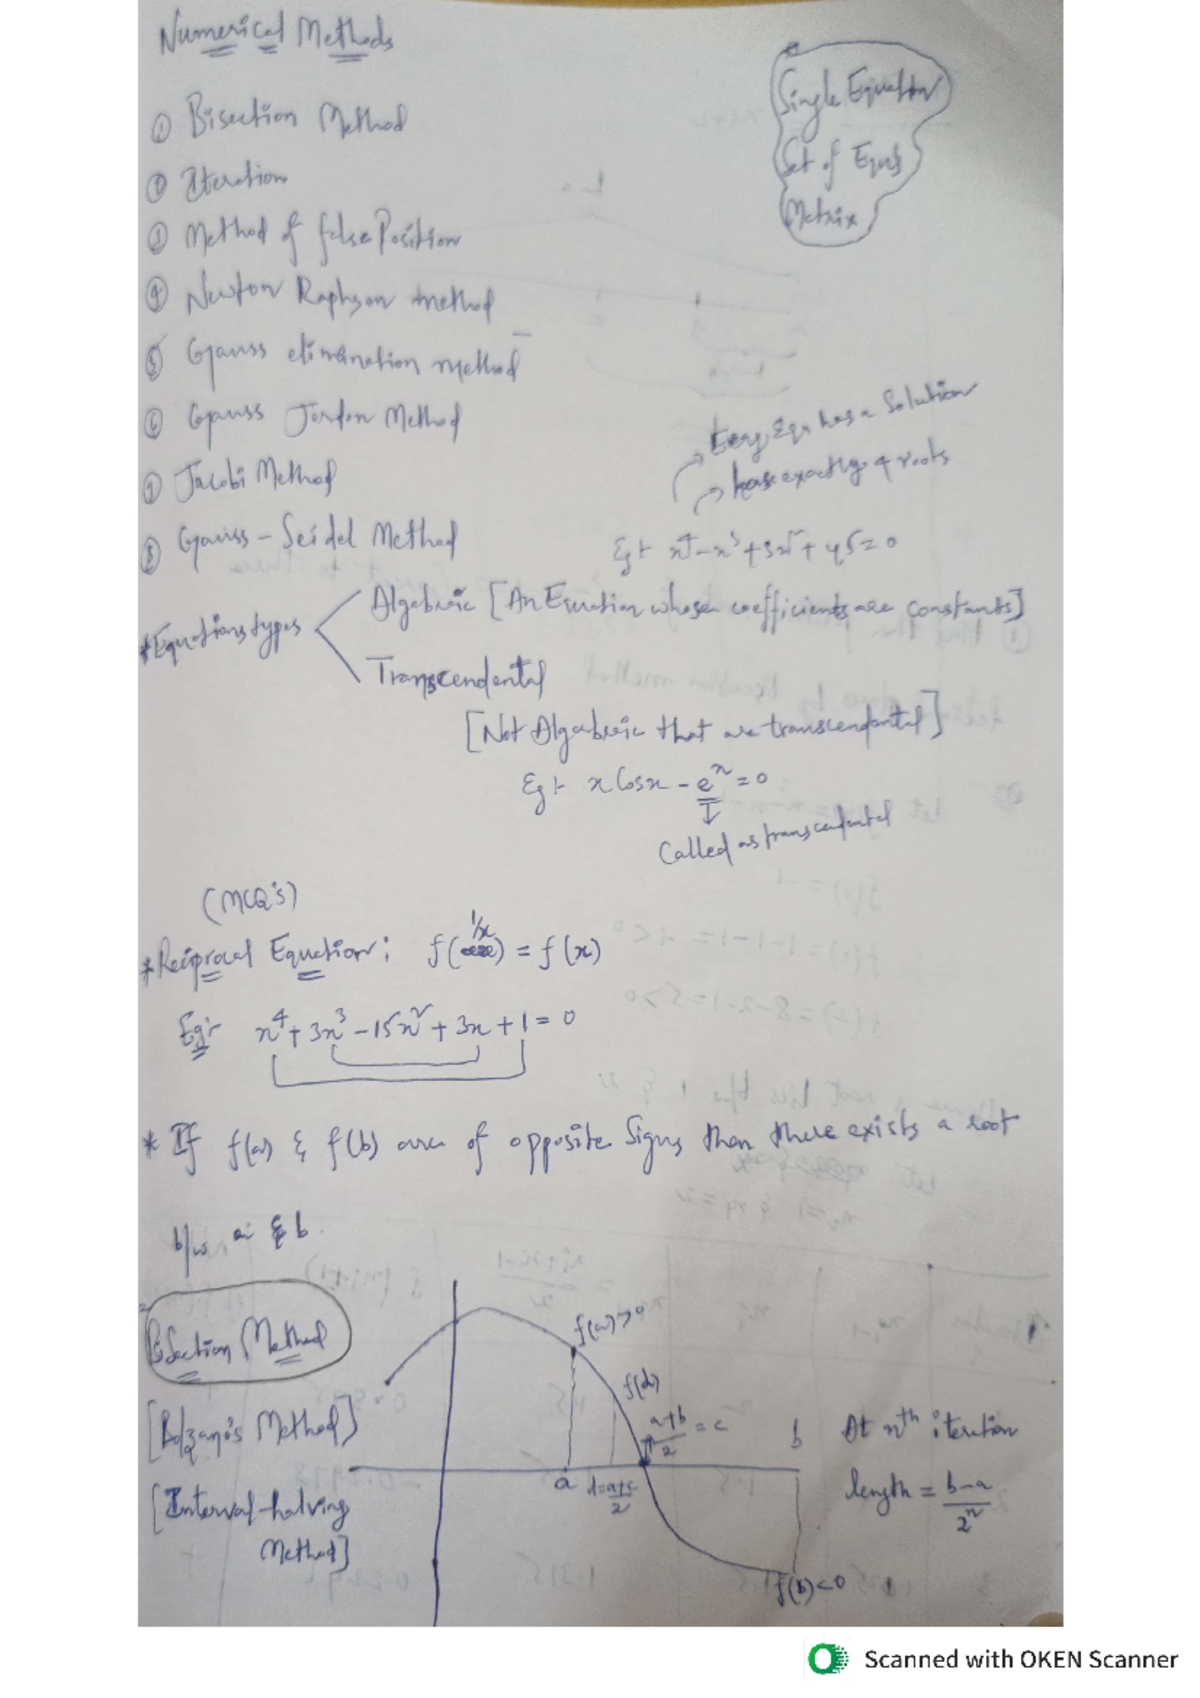 Numerical Methods
Single Equation
Set of Equs
Matrix
① Bisection Method
② Iteration
③ Method of false Position
④ Newton Raphson method
⑤ Gauss elimination method
⑥ Gauss Jordon Method
⑦ Jacobi Method
⑧ Gauss-Seidel Method
Every Eqn has a Solution
have exactly 4 roots
Eg:- x⁴-x³+3x²+45=0
*Equations types
Algebraic [An Equation whose coefficients are constants]
Transcendental
[Not Algebraic that are transcendental]
Eg:- x Cosx - eˣ = 0
Called as transcendental
(MCQ's)
*Reciprocal Equation: f(1/x) = f(x)
Eg:- x⁴+3x³-15x²+3x+1=0
* If f(a) & f(b) are of opposite Signs then there exists a root
b/w a & b.
Bisection Method
[Bolzano's Method]
[Interval-halving
Method]
f(a)>0
f(d)
a+b/2 = c
a
d=a+c/2
b
f(b)<0
At nᵗʰ iteration
length = b-a/2ⁿ
Scanned with OKEN Scanner